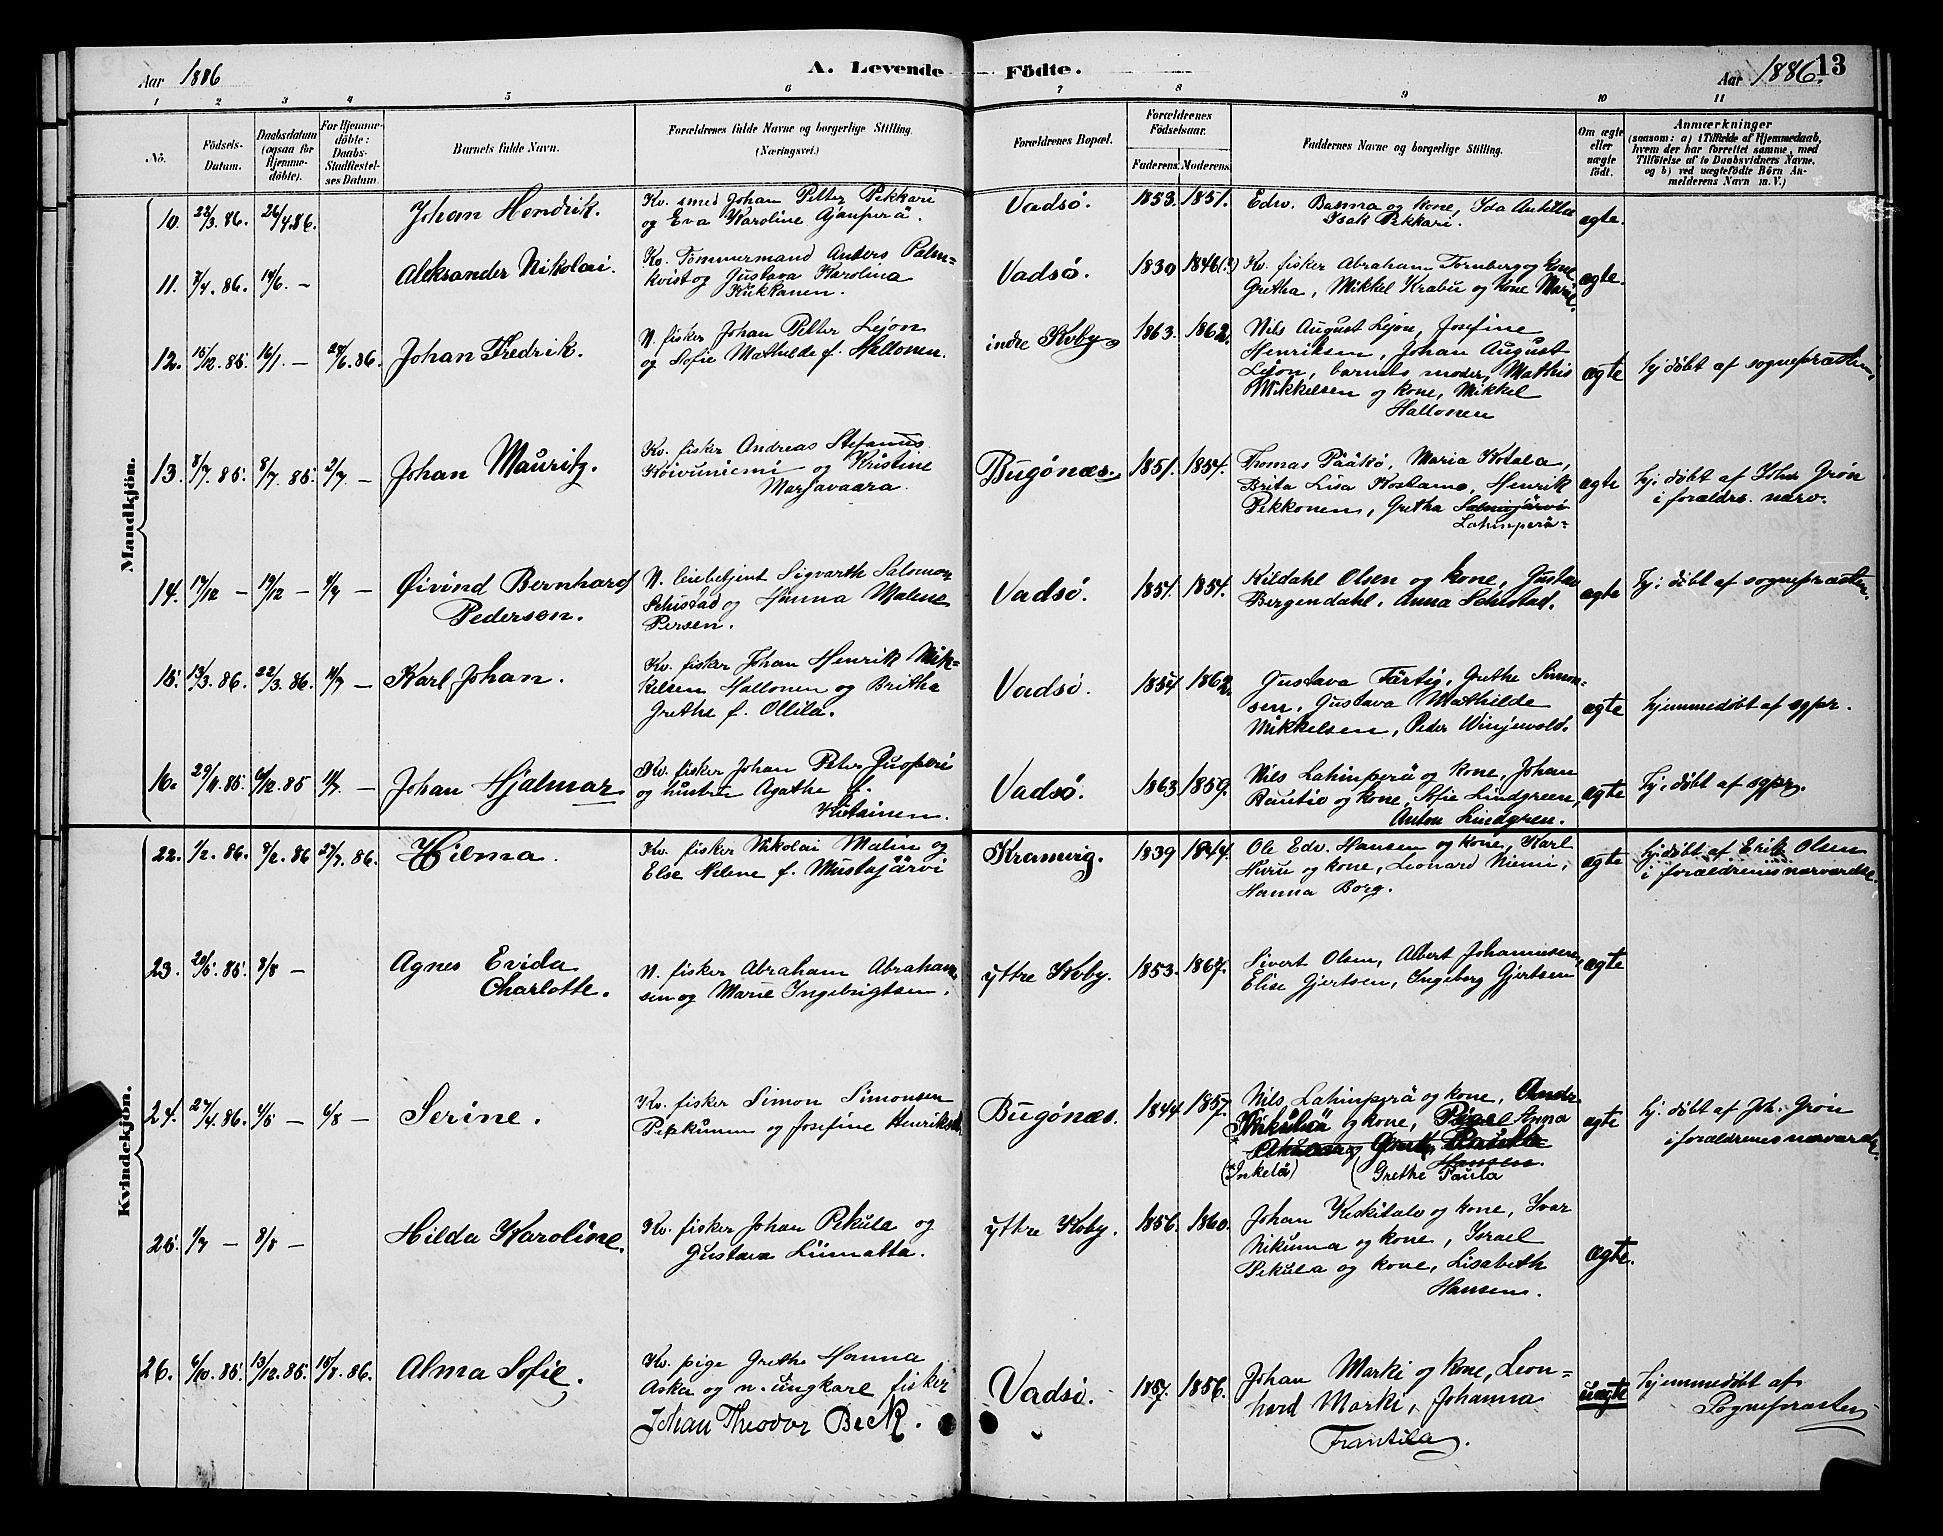 Aar 1886 A. Levende Födte. Aar 1886. 13
1 2 3 4 5 6 7 8 9 10 11
Nö.
Födsels-Datum.
Daabsdatum (ogsaa for Hjemmedöbte).
For Hjemmedöbte: Daabs-Stadfæstelses Datum
Barnets fulde Navn.
Forældrenes fulde Navne og borgerlige Stilling.
(Næringsvei.)
Forældrenes Bopæl.
Forældrenes Födselsaar.
Faderens Moderens
Faddernes Navne og borgerlige Stilling.
Om ægte eller uægte födt.
Anmærkninger
(saasom: a) i Tilfælde af Hjemmedaab,
hvem der har forrettet samme, med
Tilföielse af to Daabsvidners Navne,
og b) ved uægtefödte Börn Anmelderens Navn m. V.)
Mandkjön.
10. 22/3. 86. 26/4.86. Johan Hendrik.
Kv. smed Johan Petter Pekkari
og Eva Karoline Ajanperä.
Vadsö. 1853. 1851.
Edv. Basma og kone, Ida Antilla
Isak Pekkari.
ægte.
11. 7/4. 86. 14/6. – Aleksander Nikolai.
Kv. Tömmermand Anders Palm-
kvist og Gustava Karolina
Kukkanen.
Vadsö. 1830 1846(?)
Kv. fisker Abraham Tornberg og kone
Gretha, Mikkel Krabu og kone Marie.
ægte.
12. 15/12. 85. 16/1. – 24/6. 86. Johan Fredrik.
N. fisker Johan Petter Lejon
og Sofie Mathilde f. Hallonen.
indre Koby 1863. 1862.
Nils August Lejon, Josefine
Henriksen, Johan August
Lejon, barnets moder, Mathis
Mikkelsen og kone, Mikkel
Hallonen
ægte
hj döbt af sognepræsten.
13. 8/7. 85. 8/7. 85. 2/7 – Johan Mauritz.
Kv. fisker Andreas Stefanus
Koivuniemi og Kristine
Marjavaara.
Bugönæs. 1851. 1854.
Thomas Pääkö, Maria Kotala,
Brita Lisa Kostamo, Henrik
Pekkonen, Gretha Salmijärvi
Lahinperä
ægte
hj. döbt af Joh. Grön
i forældre. nærv.
14. 17/12 – 19/12 – 4/7 – Øivind Bernhard
Pedersen.
N. Sigvarth Salomon
Schistad og Hanna Malene
Persen.
Vadsö. 1851. 1854.
Kildahl Olsen og kone, Gusta
Bergendahl, Anna Schistad.
ægte
hj. döbt af sognepræsten.
15. 13/3. 86. 22/3. 86. 11/7 – Karl Johan.
Kv. fisker Johan Henrik Mik-
kelsen Hallonen og Britha
Grethe f. Ollila.
Vadsö. 1854 1862.
Gustava Färtig, Grethe Simon-
sen, Gustava Mathilde
Mikkelsen, Peder Winjevold.
ægte
hjemmedöbt af sgpr.
16. 29/11. 85. 6/12. 85 11/7. – Johan Hjalmar
Kv. fisker Johan Peter Juoperi
og hustru Agathe f.
Kietäinen.
Vadsö. 1863 1859.
Nils Lahinperä og kone, Johan
Rautio og kone, Sofie Lindgreen,
Anton Lindgren.
ægte
hj. döbt af sgpr.
Kvindekjön.
22. 1/2. 86. 9/2. 86 27/7. 86. Hilma.
Kv. fisker Nikolai Malin og
Else Helene f. Mustajärvi
Kramvig. 1839 1844.
Ole Edv. Hansen og kone, Karl
Huru og kone, Leonard Niemi,
Hanna Borg.
ægte
hj. döbt af Erik Olsen
i forældrenes nærværelse.
23. 20/5. 85. 8/8 – Agnes Evida
Charlotte.
N. fisker Abraham Abraham-
sen og Marie Ingebrigtsen.
yttre Koby. 1853. 1867.
Sivert Olsen, Albert Johannesen,
Elise Gjertsen, Ingeborg Gjertsen
ægte
24. 27/4. 86. 4/5 – 6/8 – Serine.
Kv. fisker Simon Simonsen
Pekkunen og Josefine Henriksd.
Bugönæs. 1844 1857.
Nils Lahinperä og kone, Andr.
og kone, Anna
Hansen.
(Inkelä) (Grethe Paula
ægte
hj. döbt af Joh. Grön
i forældrenes nærværelse.
25. 1/7 – 8/8 – Hilda Karoline.
Kv. fisker Johan Pekula og
Gustava Liimatta.
yttre Koby. 1856. 1860.
Johan Keskitalo og kone, Ivar
Nikuma og kone, Israel
Pekula og kone, Lisabeth
Hansen.
ægte.
26. 6/10. 85. 13/12. 85. 15/8. 86. Alma Sofie.
Kv. pige Grethe Hanna
Aska og n. ungkarl fisker
Johan Theodor Beck.
Vadsö. 1857. 1856.
Johan Marki og kone, Leon-
hard Marki, Johanna
Frantila.
uægte
hjemmedöbt af
Sognepræsten